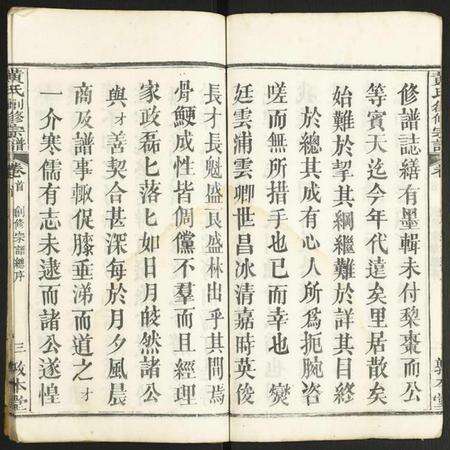 修譜誌繕有墨輯未付棃棗而公
等賓天迄今年代達矣里居散矣
始難於挈其綱繼難於詳其目終
於總其成有心人所爲扼腕咨
嗟而無所措手也已而幸也燮
廷雲浦雲卿世昌冰清嘉時英俊
長才長魁盛民盛林出乎其間焉
骨鯁成性皆倜儻不羣而且經理
家政磊匕落匕如日月皎然諸公
與才善契合甚深每於月夕風晨
商及譜事輙促膝垂涕而道之才
一介寒儒有志未逮而諸公遂惶
黃氏創修宗譜 卷首 創修宗譜總序 三 敦本堂